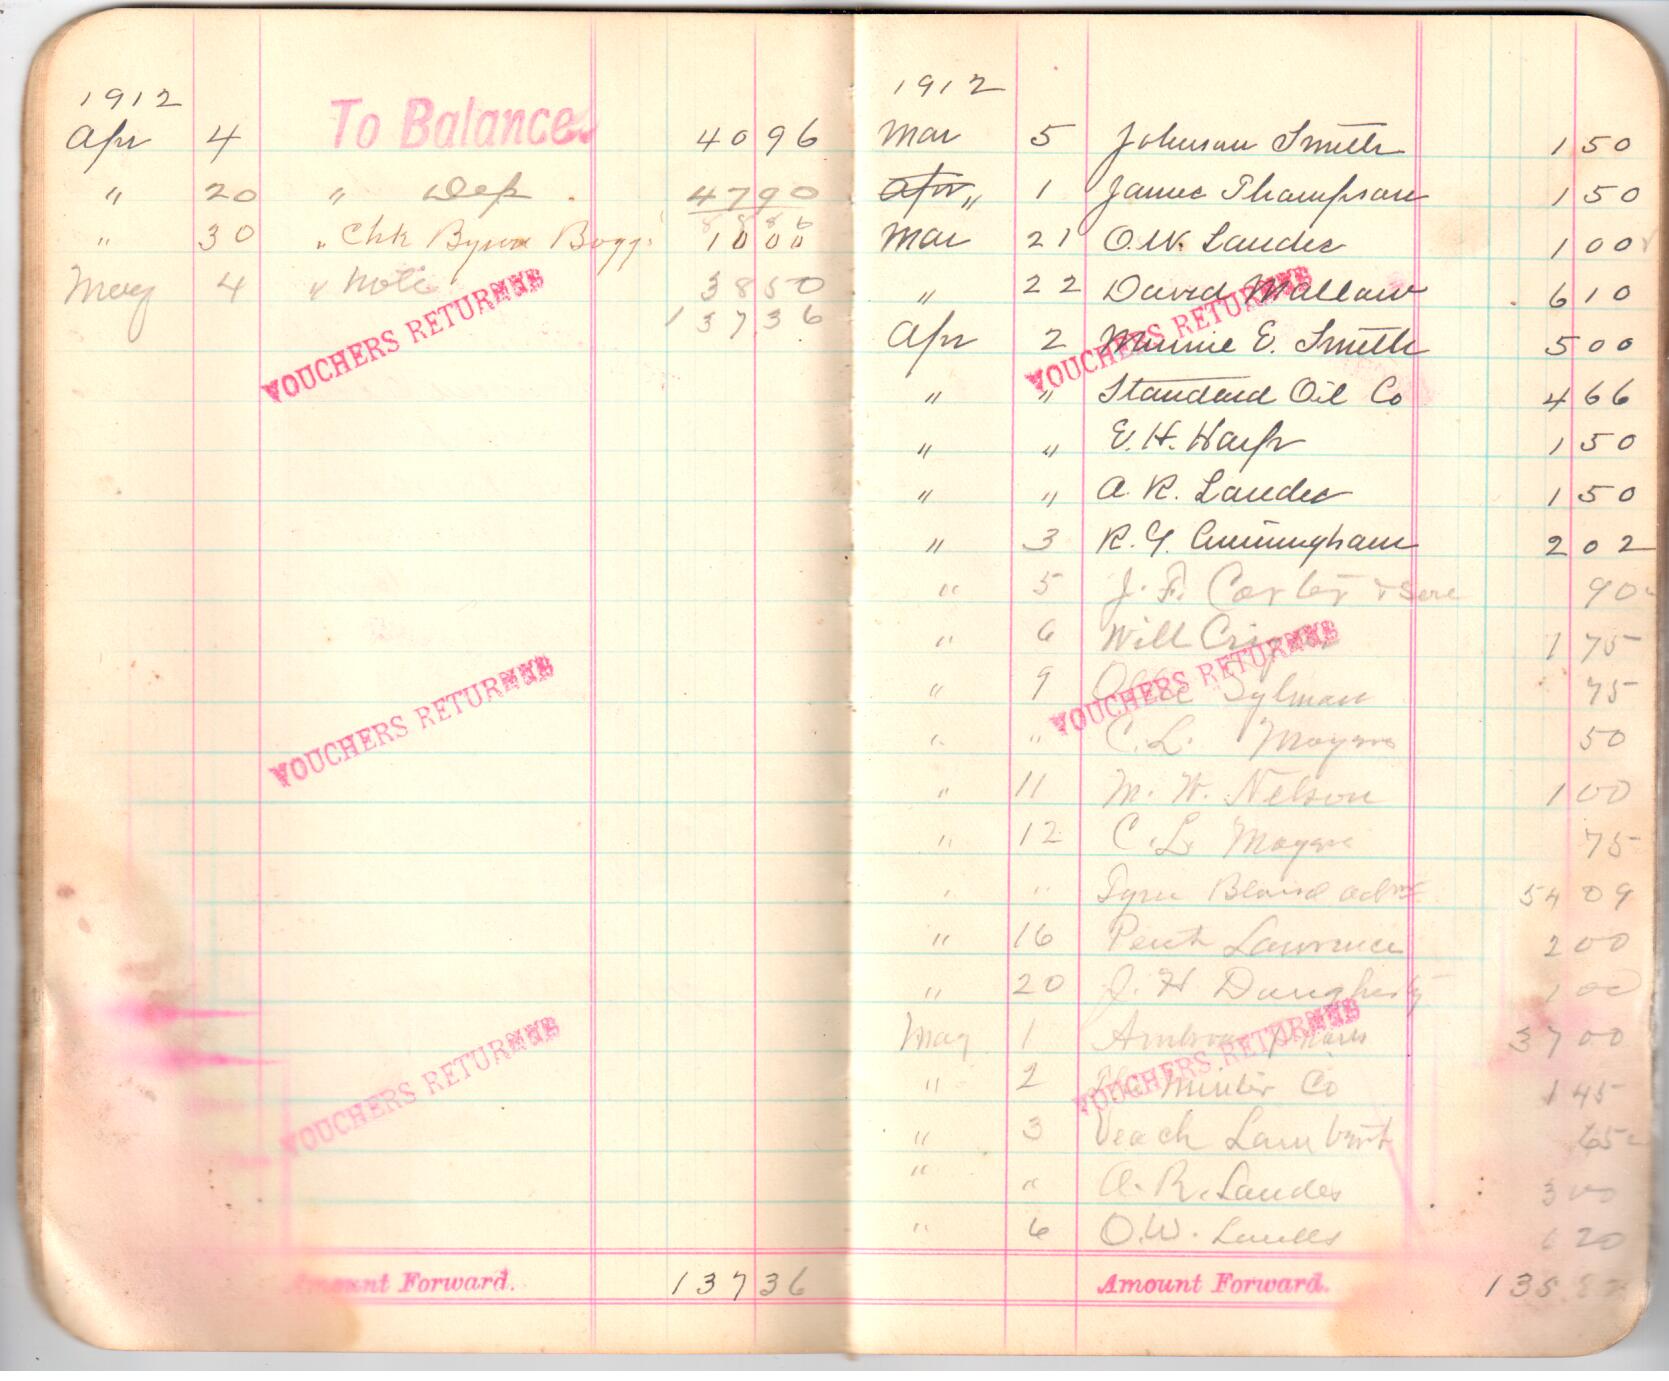 1912
Apr 4 To Balance 40 96
" 20 " Dep. 47 90
88 86
" 30 " Chk Byron Boggs 10 00
May 4 " Note 38 50
137 36
VOUCHERS RETURNED
VOUCHERS RETURNED
VOUCHERS RETURNED
Amount Forward. 137 36
1912
Mar 5 Johnson Smith 1 50
Apr " 1 James Thompson 1 50
Mar 21 O.W. Landes 1 00
" 22 David Mallow 6 10
VOUCHERS RETURNED
Apr 2 Minnie E. Smith 5 00
" " Standard Oil Co 4 66
" " E. H. Harpr 1 50
" " A. R. Landes 1 50
" 3 R. Y. Cunningham 2 02
" 5 J. F. Carter & 90
" 6 Will 1 75
VOUCHERS RETURNED
" 9 75
" " C. L. Moyers 50
" 11 M. W. Nelson 1 00
" 12 C. L. Moyers 75
" " Bland 54 09
" 16 Lawrence 2 00
" 20 J. H Daugherty 1 00
VOUCHERS RETURNED
May 1 37 00
" 2 Co 1 45
" 3 Veach Lambert 65
" " A. R. Landes 3 00
" 6 O.W. 20
Amount Forward. 135